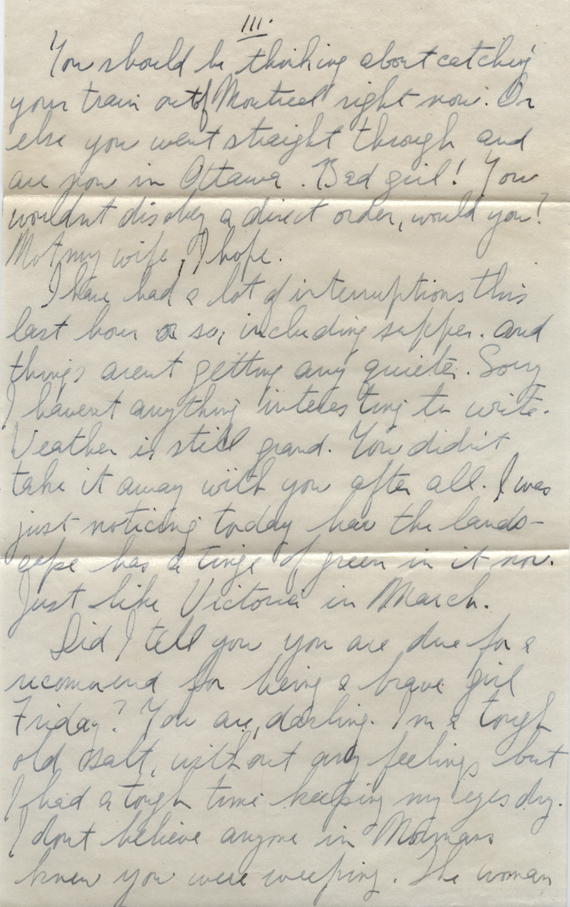 III.
You should be thinking about catching
your train out of Montreal right now. Or
else you went straight through and
are now in Ottawa. Bad girl! You
wouldn't disobey a direct order, would you?
Not my wife, I hope.
I have had a lot of interruptions this
last hour or so, including supper. And
things arent getting any quieter. Sorry
I havent anything interesting to write.
Weather is still grand. You didn't
take it away with you after all. I was
just noticing today how the lands-
cape has a tinge of green in it now.
Just like Victoria in March.
Did I tell you you are due for a
recommend for being a brave girl
Friday? You are, darling. I'm a tough
old salt, without any feelings but
I had a tough time keeping my eyes dry.
I dont believe anyone in
knew you were weeping. The woman